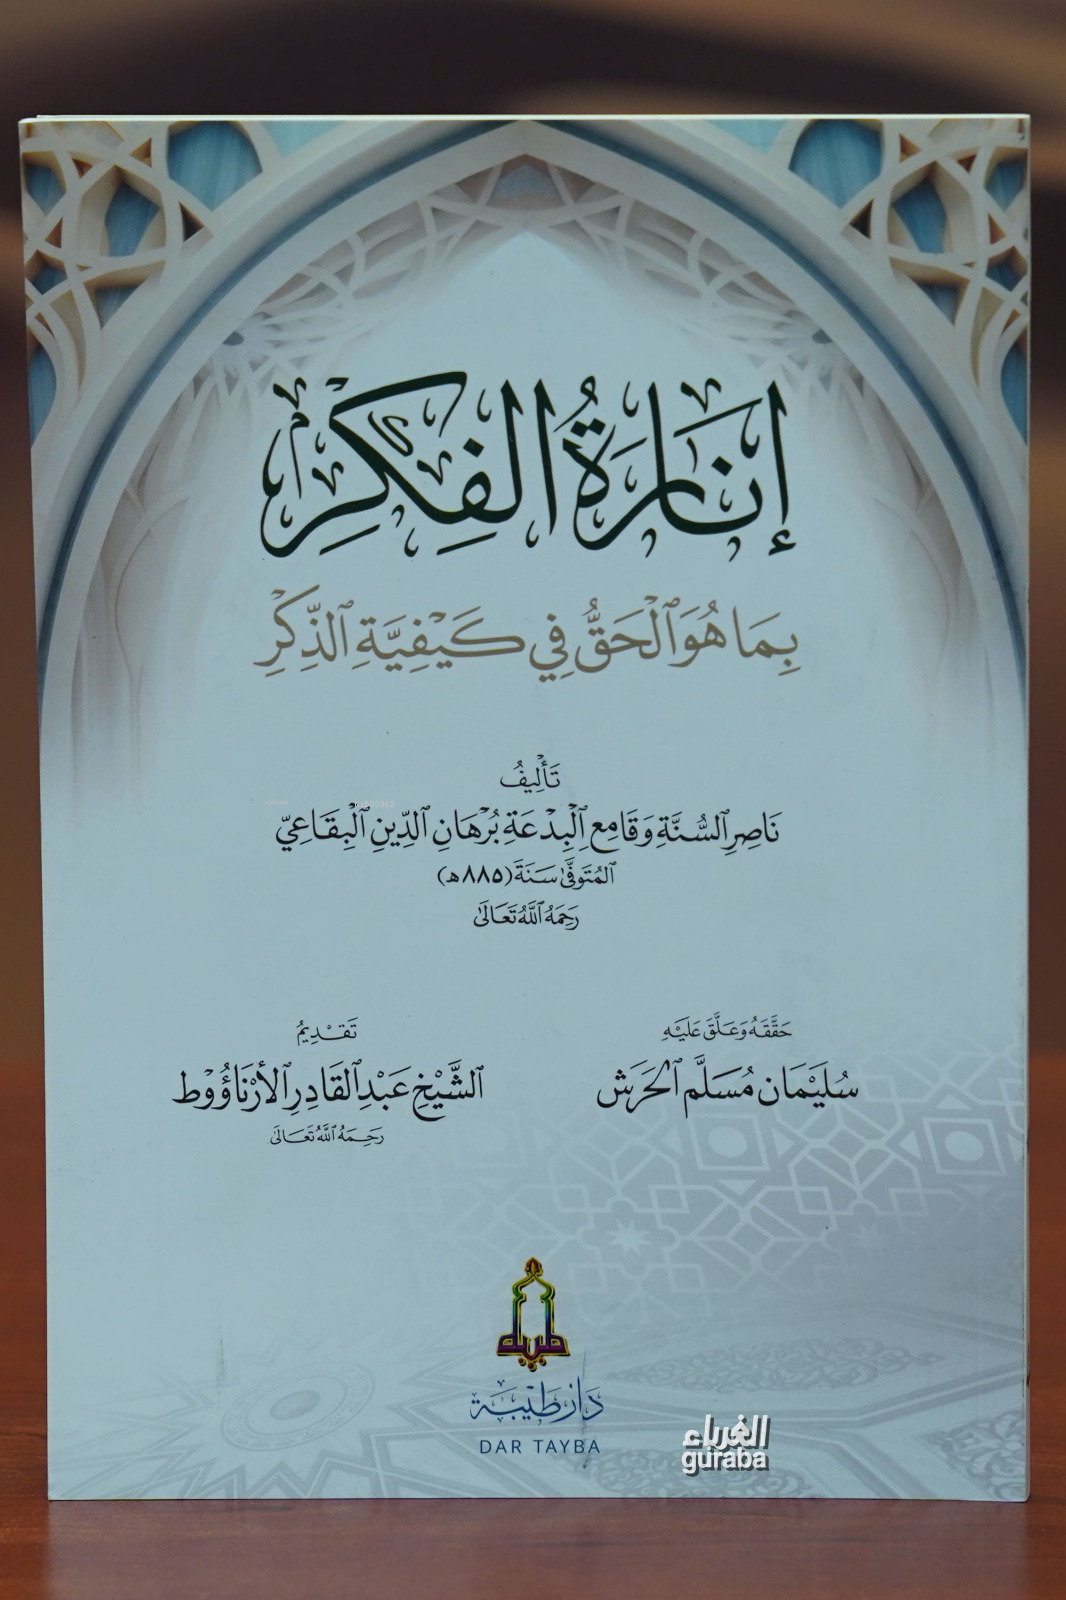 إِنَارَةُ الفِكْرِ
بِمَا هُوَ الْحَقُّ فِي كَيْفِيَّةِ الذِّكْرِ
تَأْلِيفُ
نَاصِرِ السُّنَّةِ وَقَامِعِ الْبِدْعَةِ بُرْهَانِ الدِّينِ الْبِقَاعِيِّ
المُتَوَفَّىٰ سَنَةَ (٨٨٥ هـ)
رَحِمَهُ اللَّهُ تَعَالَىٰ
حَقَّقَهُ وَعَلَّقَ عَلَيْهِ
سُلَيْمَان مُسَلَّم الحَرَش
تَقْدِيمُ
الشَّيْخِ عَبْدِ القَادِرِ الأَرْنَاؤُوط
رَحِمَهُ اللَّهُ تَعَالَىٰ
طيبة
دَارُ طَيْبَة
DAR TAYBA
الغرباء
guraba